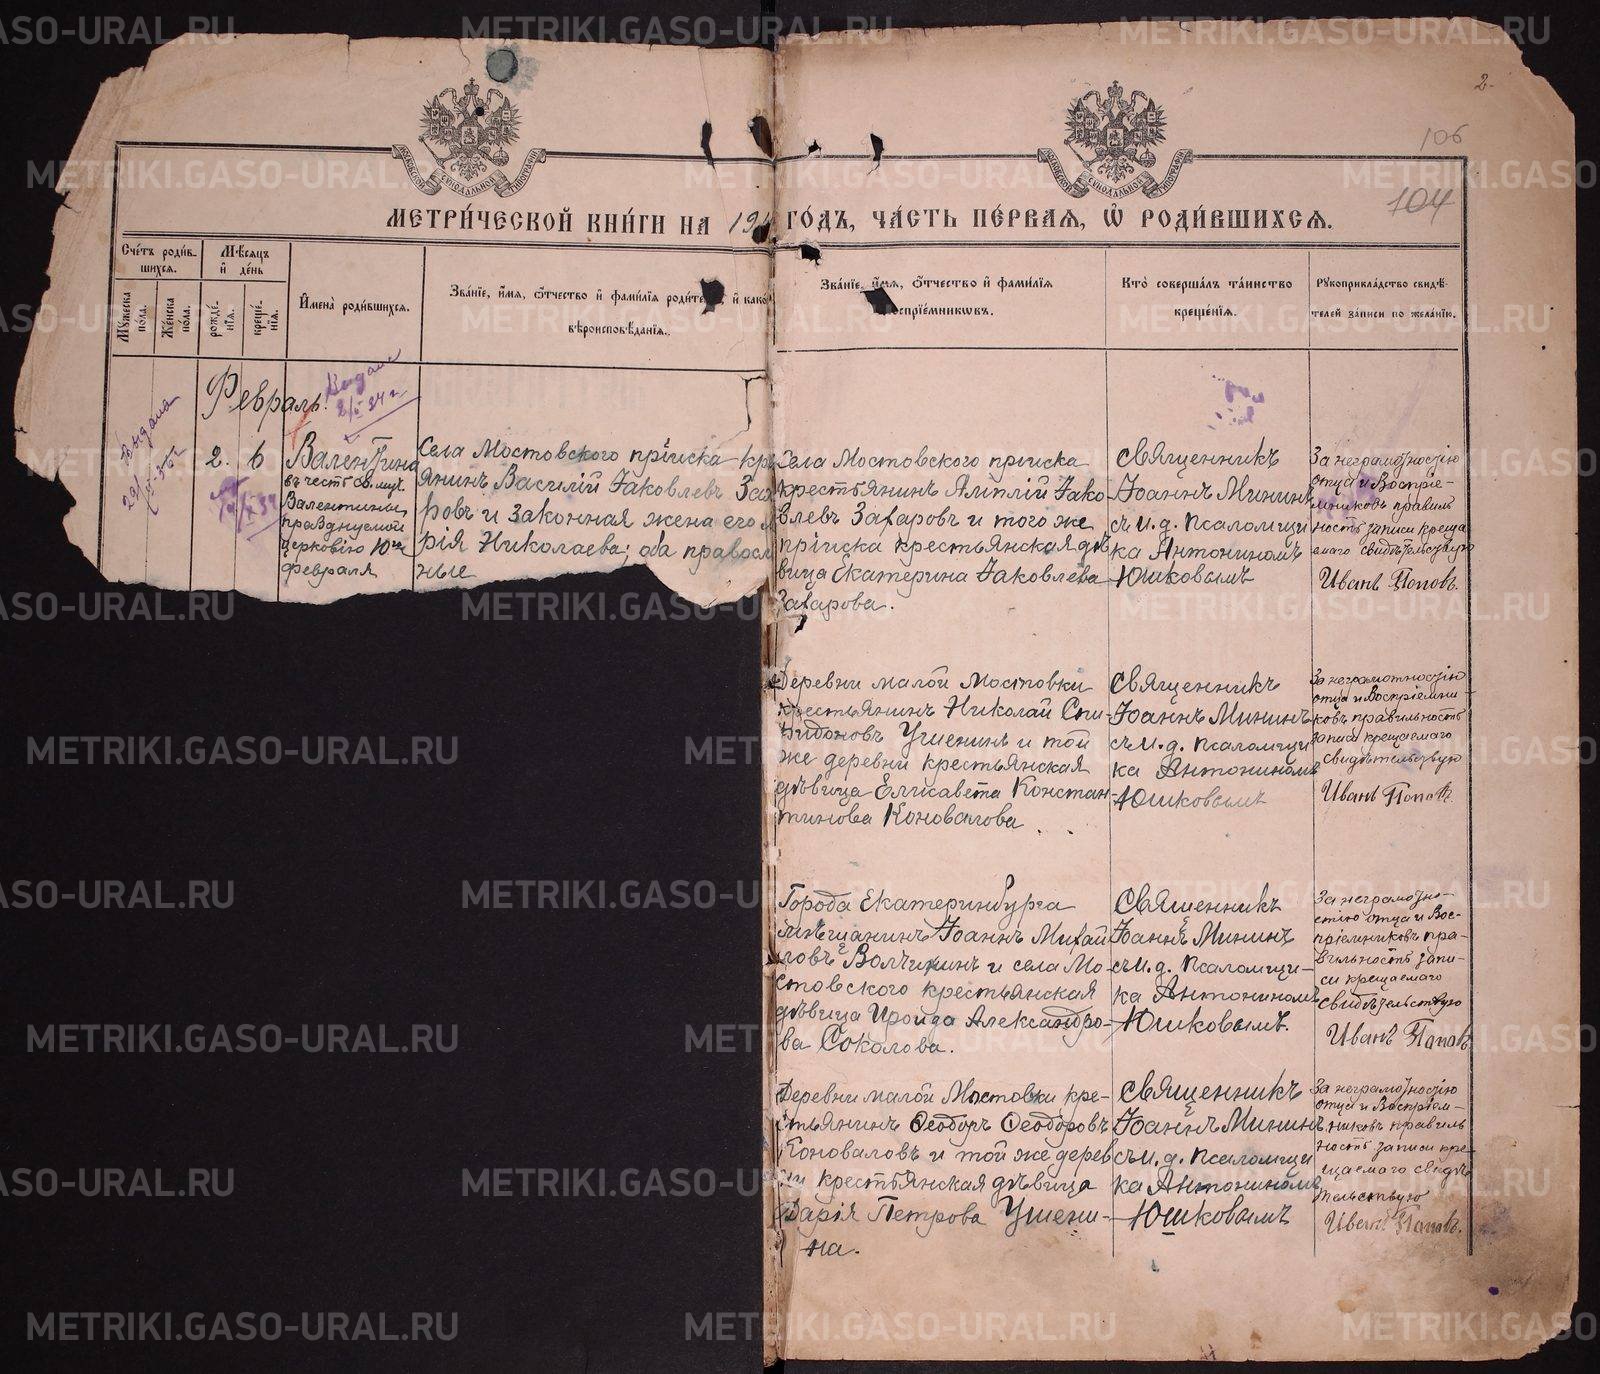 2.
106
104
МОСКОВСКОЙ СѴНОДАЛЬНОЙ ТИПОГРАФІИ
МОСКОВСКОЙ СѴНОДАЛЬНОЙ ТИПОГРАФІИ
МЕТРИ́ЧЕСКОЙ КНИ́ГИ НА 19
ГО́ДЪ, ЧА́СТЬ ПЕ́РВАЯ, Ѡ҆ РОДИ́ВШИХСЯ.
Сче́тъ роди́в-
шихся.
Мꙋ́жеска
по́ла.
Же́нска
по́ла.
Мѣ́сяцъ
и҆ де́нь
рожде́-
нїѧ.
креще́-
нїѧ.
И҆мена̀ роди́вшихся.
Зва́нїе, и҆́мѧ, ѻ҆́тчество и҆ фами́лїѧ роди́те и҆ како
вѣроисповѣ́данїѧ.
Зва́нїе, и҆́мѧ, ѻ҆́тчество и҆ фами́лїѧ
оспрїе́мникѡвъ.
Кто̀ соверша́лъ та́инство
креще́нїѧ.
Рꙋкоприкла́дство свидѣ́-
телей за́писи по жела́нїю.
Февраль.
Выдана
Выдан
2.
6
Валентина
въ честь св. муч.
Валентины
празднуемой
церковію 10го
февраля
Села Мостовского пріиска кре
янинъ Василій Іаковлевъ Заха
ровъ и законная жена его М
рія Николаева; оба правосл
ные
Села Мостовского пріиска
крестьянинъ Амплій Іако
влевъ Захаровъ и того же
пріиска крестьянская дѣ
вица Екатерина Іаковлева
Захарова.
Священникъ
Іоаннъ Мининъ
съ и. д. псаломщи
ка Антониномъ
Юшковымъ
За неграмотностію
отца и Воспріе-
мниковъ правиль
ность записи креща
емаго свидѣтельствую
Иванъ Поповъ.
Деревни малой Мостовки
крестьянинъ Николай Спи-
ридоновъ Ушенинъ и той
же деревни крестьянская
дѣвица Елисавета Констан-
тинова Коновалова
Священникъ
Іоаннъ Мининъ
съ и. д. псаломщи
ка Антониномъ
Юшковымъ
За неграмотностію
отца и Воспріемни-
ковъ правильность
записи крещаемаго
свидѣтельствую
Иванъ Поповъ.
Города Екатеринбурга
мѣщанинъ Іоаннъ Михай
ловъ Волчихинъ и села Мо-
стовского крестьянская
дѣвица Ироида Александро-
ва Соколова.
Священникъ
Іоаннъ Мининъ
съ и. д. псаломщи-
ка Антониномъ
Юшковымъ.
За неграмотно-
стію отца и Вос-
пріемниковъ пра-
вильность запи-
си крещаемаго
свидѣтельствую
Иванъ Поповъ
Деревни малой Мостовки кре-
стьянинъ Ѳеодоръ Ѳеодоровъ
Коноваловъ и той же дерев
ни крестьянская дѣвица
Дарія Петрова Ушени-
на.
Священникъ
Іоаннъ Мининъ
съ и. д. псаломщи
ка Антониномъ
Юшковымъ
За неграмотностію
отца и Воспріем-
никовъ правиль
ность записи кре-
щаемаго свидѣ
тельствую
Иванъ Поповъ.
METRIKI.GASO-URAL.RU